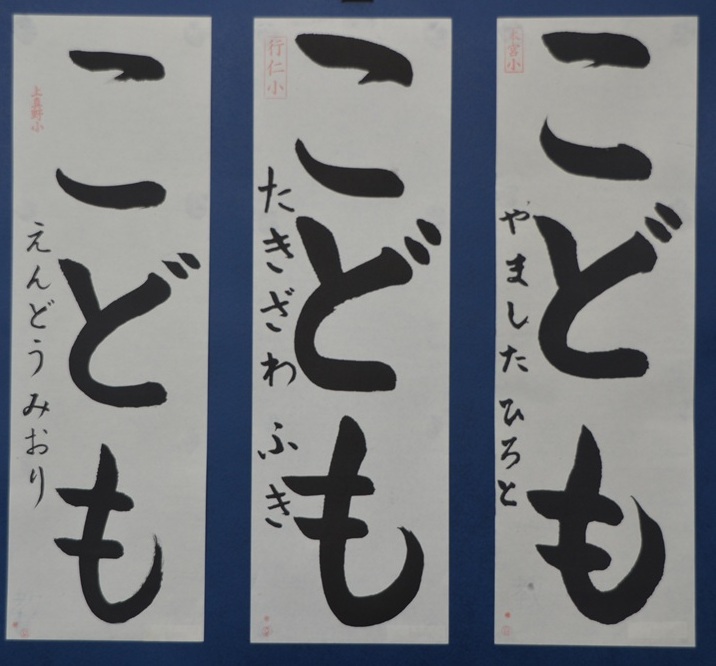 宮小
こども
やました ひろと
行仁小
こども
たきざわ ふき
上真野小
こども
えんどう みおり